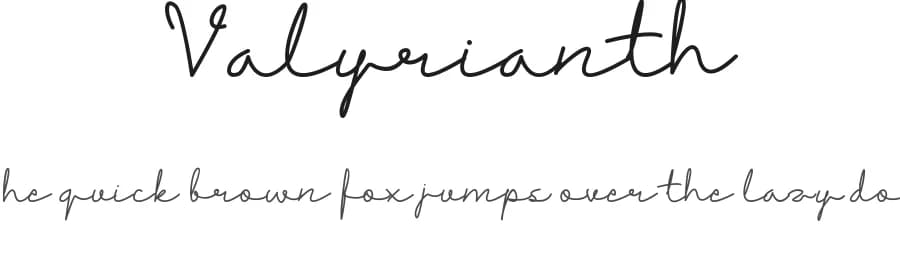 Valyrianth
he quick brown fox jumps over the lazy do